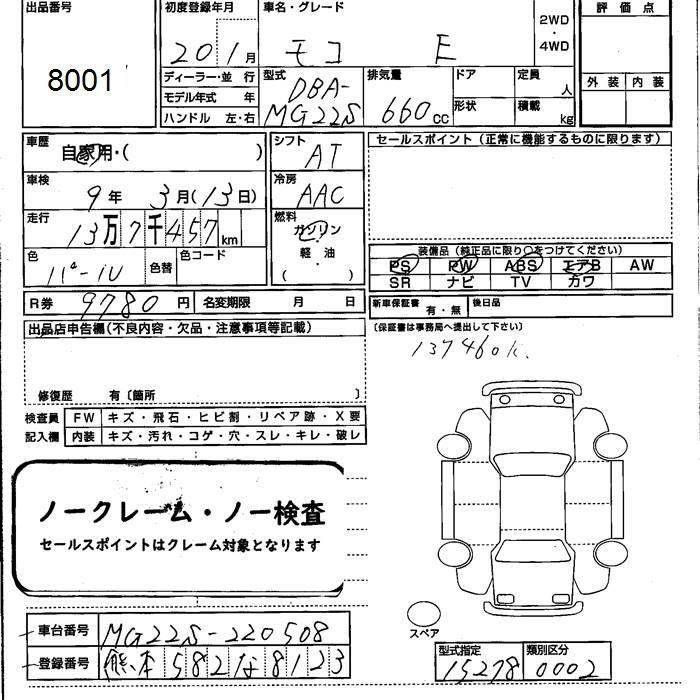 出品番号 初度登録年月 車名・グレード 評価点
8001 20 1月 モコ E 2WD・4WD
ディーラー・並行 型式 排気量 ドア 定員 人 外装 内装
モデル年式 年 DBA- 660cc
ハンドル 左・右 MG22S 形状 積載 kg
車歴 自家用・( ) シフト AT セールスポイント(正常に機能するものに限ります)
車検 9年 3月(13日) 冷房 AAC
走行 13万7千457km 燃料 ガソリン
色 パール 色替 色コード 軽油 ( )
装備品(純正品に限り○をつけてください)
PS PW ABS エアB AW
SR ナビ TV カワ
R券 9780円 名変期限 月 日 新車保証書 有・無 後日品
出品店申告欄(不良内容・欠品・注意事項等記載) (保証書は事務局へ提出して下さい)
137460k.
修復歴 有〔箇所 〕
検査員 FW キズ・飛石・ヒビ割・リペア跡・X要
記入欄 内装 キズ・汚れ・コゲ・穴・スレ・キレ・破レ
ノークレーム・ノー検査
セールスポイントはクレーム対象となります
スペア
車台番号 MG22S-220508
登録番号 熊本 582 な 8123
型式指定 類別区分
15278 0002